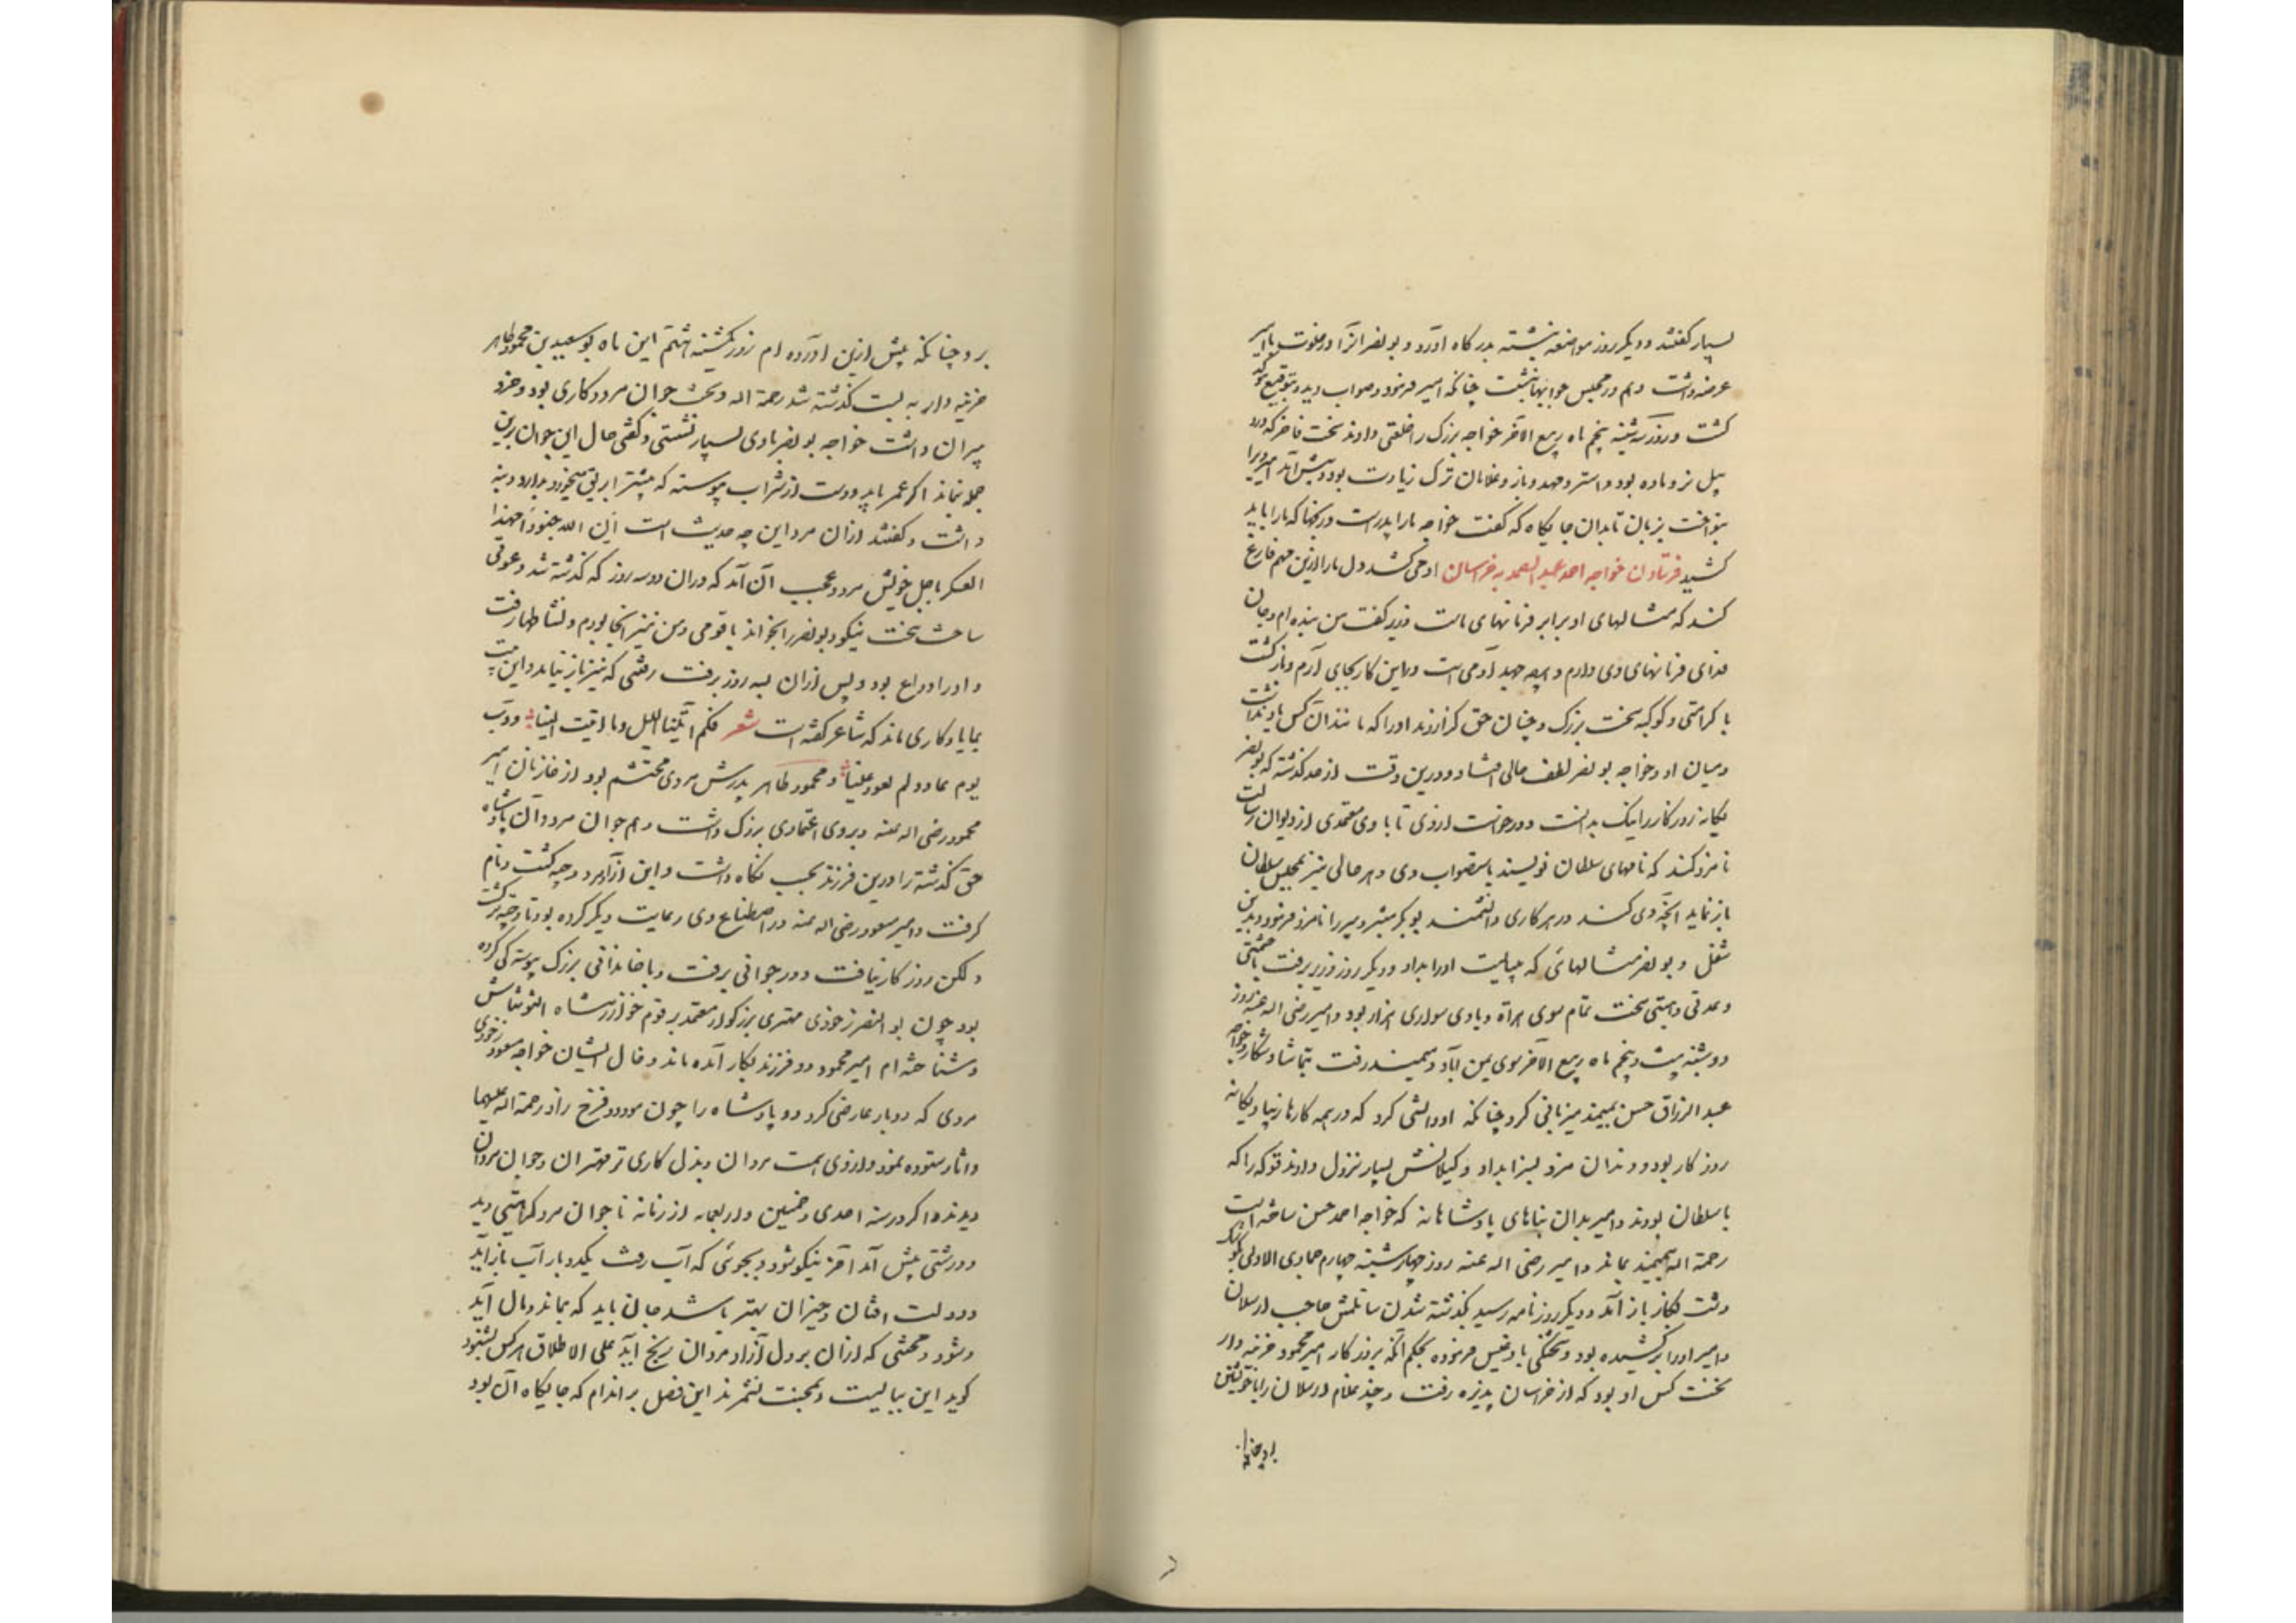 بسیار گفتند و دیگر روز مواضعه نبشته بدرگاه آورد و بونصر آنرا در خلوت با امیر
عرضه داشت و هم در مجلس جوابها نبشت چنانکه امیر فرمود و صواب دید و بتوقیع موکد
گشت و روز سه شنبه پنجم ماه ربیع الآخر خواجه بزرگ را خلعتی دادند سخت فاخر که درو
پیل نر و ماده بود و استر و مهد و باز و غلامان ترک زیادت بود و پیش آمد امیر ویرا
بنواخت بزبان تا بدان جایگاه که گفت خواجه ما را پدرست و رنجها که ما را باید
کشید فرستادن خواجه احمد عبد الصمد به خراسان او می کشد دل ما را ازین مهم فارغ
کند که مثالهای او برابر فرمانهای ماست وزیر گفت من بنده ام و جان
فدای فرمانهای وی دارم و هرچه جهد آدمی است درین کار بجای آرم و بازگشت
با کرامتی و کوکبه سخت بزرگ و چنان حق گزاردند او را که مانند آن کس یاد نداشت
و میان او و خواجه بونصر لطف حالی افتاد و درین وقت از حد گذشته که بونصر
یگانه روزگار را نیک بدانست و درخواست از وی تا با وی معتمدی از دیوان رسالت
نامزد کند که نامهای سلطان نویسند باستصواب وی و هر حالی نیز بمجلس سلطان
باز نماید آنچه وی کند در هر کاری دانشمند بوبکر مبشر دبیر را نامزد فرمود و بدین
شغل و بونصر مثالهائی که ببایست او را بداد و دیگر روز وزیر برفت با حشمتی
و عدتی و اهبتی سخت تمام سوی هراة و با وی سواری هزار بود و امیر رضی اله عنه روز
دوشنبه بیست و پنجم ماه ربیع الآخر سوی یمن آباد و میمند رفت بتماشا و شکار و خواجه
عبد الرزاق حسن بمیمند میزبانی کرد چنانکه او دانستی کرد که در همه کارها زیبا و یگانه
روزگار بود و دندان مزد بسزا بداد و کیلانش بسیار نزول دادند قومی را که
با سلطان بودند و امیر بدان بناهای پادشاهانه که خواجه احمد حسن ساخته است
رحمة اله بمیمند بماند و امیر رضی اله عنه روز چهارشنبه چهارم جمادی الاولی بکوشک
دشت لنگان باز آمد و دیگر روز نامه رسید بگذشته شدن ساتلمش حاجب ارسلان
و امیر او را برکشیده بود و شحنگی بادغیس فرموده بحکم آنکه بروزگار امیر محمود خزینه دار
نخست کس او بود که از خراسان پذیره رفت و چند غلام ارسلان را با خویشتن
بر و چنانکه پیش ازین آورده ام روز یکشنبه هشتم این ماه بوسعید بن محمود طاهر
خزینه دار به بست گذشته شد رحمة اله و سخت جوان مرد و کاری بود و خرد
پیران داشت خواجه بونصر با وی بسیار نشستی و گفتی حال این جوان برین
جمله نماند اگر عمر یابد و دست از شراب پیوسته که بیشتر ابریق میخورد بدارد و بنه
داشت و گفتند از آن مرد این چه حدیث است ان الله جنودا مهذا
العسکر باجل خویش مرد و عجب آن آمد که در آن دو سه روز که گذشته شد دعوتی
ساخت سخت نیکو و بونصر را بخواند با قومی و من نیز آنجا بودم و نشاطها رفت
و او را وداع بود و پس از آن بسه روز برفت رفتنی که نیز باز نیاید و این بیت
بما یادگاری ماند که شاعر گفته است شعر فکم ابکینا اللیل و ما بقیت الینا و رب
یوم عاد و لم یعود علینا و محمود طاهر پدرش مردی محتشم بود از خازنان امیر
محمود رضی اله عنه و بر وی اعتمادی بزرگ داشت و هم جوان مرد و آن پادشاه
حق گذشته را درین فرزند بحسب نگاه داشت و این آزاد مرد وجیه گشت و نام
گرفت و امیر مسعود رضی اله عنه در اصطناع وی رعایت دیگر کرده بود تا وجیه تر گشت
ولکن روزگار نیافت و در جوانی برفت و با خاندانی بزرگ پیوستگی کرده
بود چون بو النصر زخودی مهتری بزرگ و از معتمد بر قوم خوارزمشاه التونتاش
و شناخته ام امیر محمود دو فرزند بکار آمده ماند و خال ایشان خواجه مسعود زخودی
مردی که دو بار عارضی کرد دو پادشاه را چون مودود و فرخ زاد رحمة اله علیهما
و آثار ستوده نمود و از وی همت مردان و بذل کاری تر مهتران و جوان مردان
دیدند و اگر در سنه احدی و خمسین و اربعمایه از زمانه ناجوان مرد کراهتی دید
و درشتی پیش آمد آخر نیکو شود و بجوئی که آب رفت یکدو بار آب باز آید
و دولت افتان و خیزان بهتر باشد جان باید که بماند و مال آید
و شود و محنتی که از آن بر دل آزاد مردان رنج آید علی الاطلاق هر کس بشنود
گوید این بیا بیست و بمحنت نشمرند این فصل براندم که جایگاه آن بود